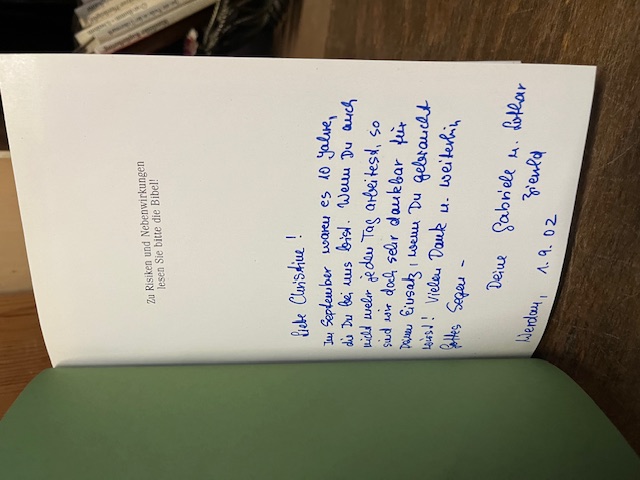 Zu Risiken und Nebenwirkungen
lesen Sie bitte die Bibel!
Liebe Christine!
Im September waren es 10 Jahre,
die Du bei uns bist. Wenn Du auch
nicht mehr jeden Tag arbeitest, so
sind wir doch sehr dankbar für
Deinen Einsatz wenn Du gebraucht
wirst! Vielen Dank u. weiterhin
Gottes Segen -
Deine Gabriele u. Lothar
Werdau, 1.9.02